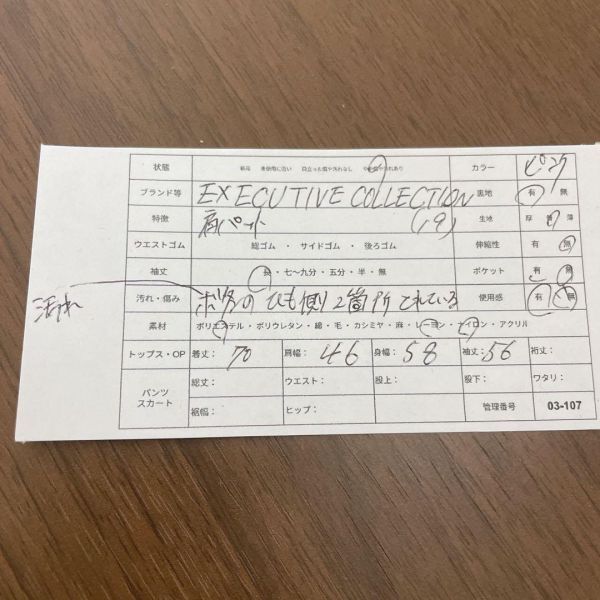 状態 新品 未使用に近い 目立った傷や汚れなし やや傷や汚れあり カラー ピンク
ブランド等 EXECUTIVE COLLECTION 裏地 有 無
特徴 肩パット (19) 生地 厚 普 薄
ウエストゴム 総ゴム ・ サイドゴム ・ 後ろゴム 伸縮性 有 無
袖丈 長・七〜九分・五分・半・無 ポケット 有 無
汚れ
汚れ・傷み のひも側り2箇所とれている 使用感 有 無
素材 ポリエステル・ポリウレタン・綿・毛・カシミヤ・麻・レーヨン・ナイロン・アクリル
トップス・OP 着丈: 70 肩幅: 46 身幅: 58 袖丈: 56 裄丈:
パンツ スカート 総丈: ウエスト: 股上: 股下: ワタリ:
裾幅: ヒップ: 管理番号 03-107